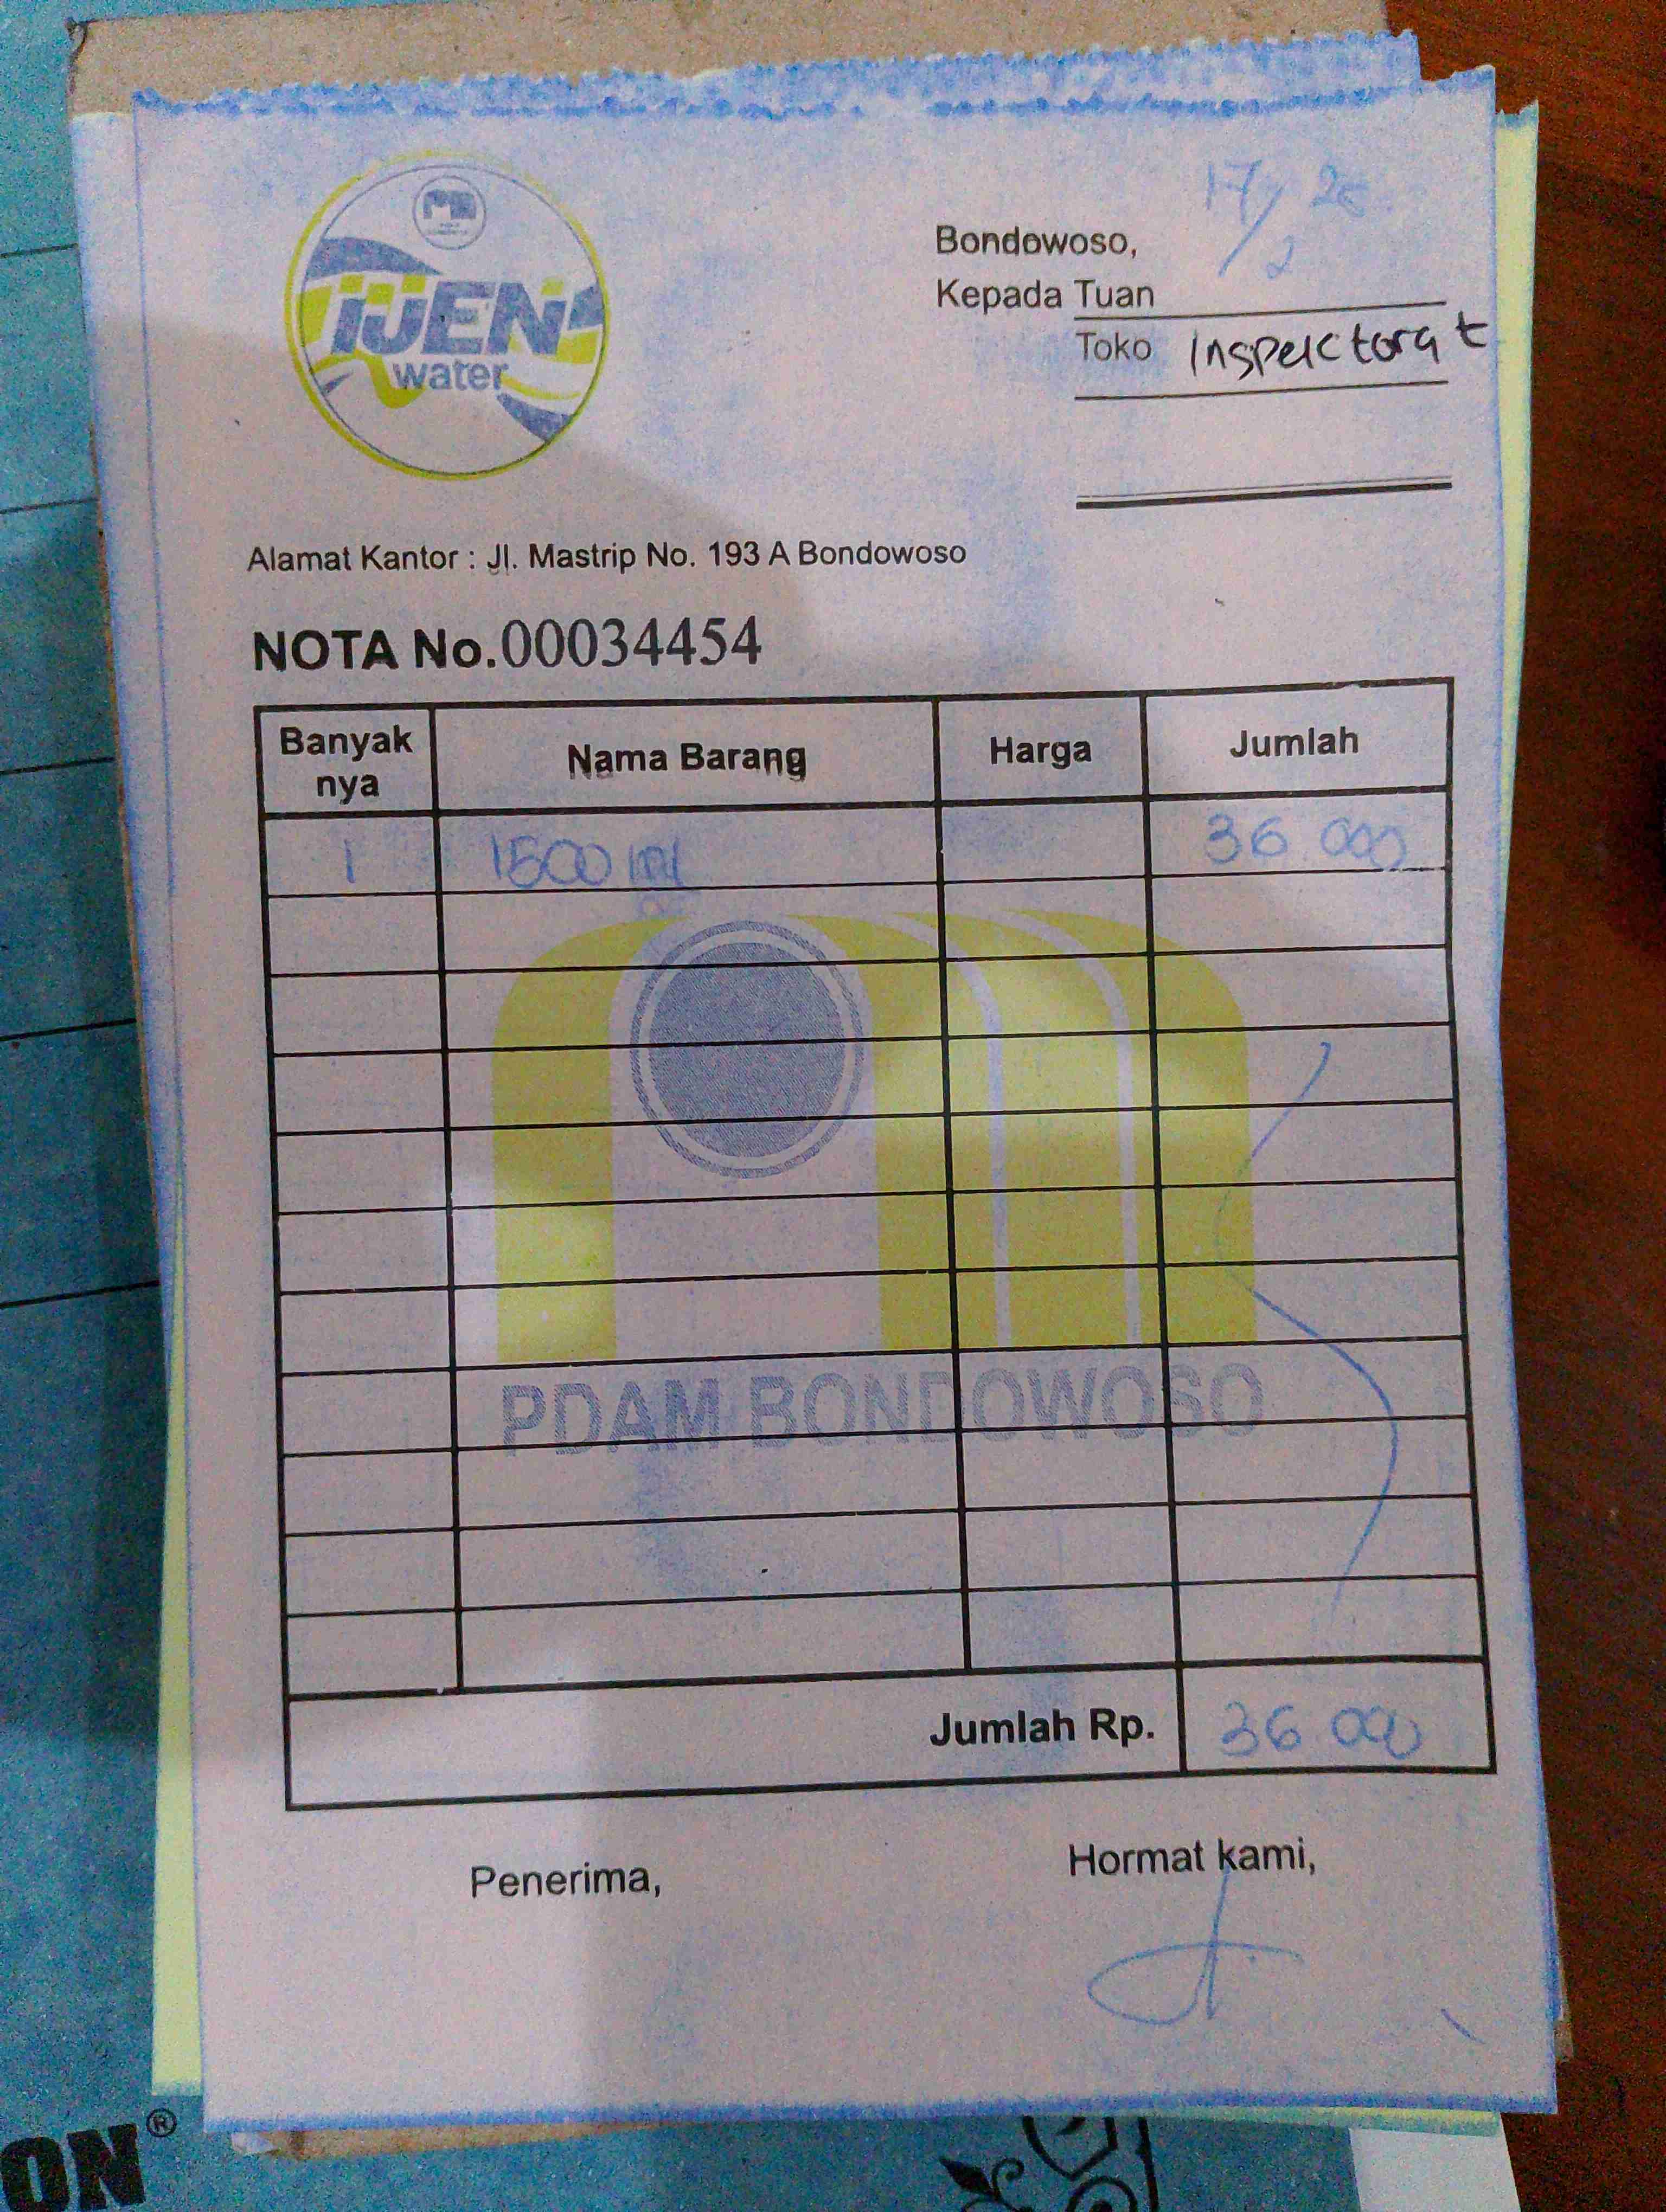 IJEN
water
17/2 26
Bondowoso,
Kepada Tuan
Toko Inspektorat
Alamat Kantor : Jl. Mastrip No. 193 A Bondowoso
NOTA No.00034454
Banyak nya Nama Barang Harga Jumlah
1 1500 ml 36.000
PDAM BONDOWOSO
Jumlah Rp. 36.000
Penerima,
Hormat kami,
ON®